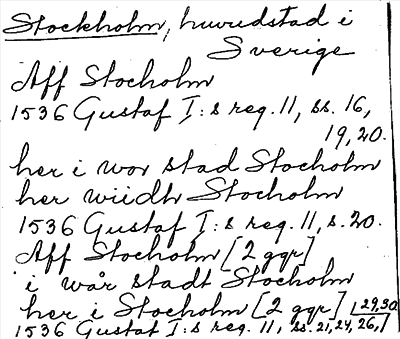 Stockholm, huvudstad i
Sverige
Aff Stocholm
1536 Gustaf I:s reg. 11, ss. 16,
19, 20.
her i wor stad Stocholm
her wiidh Stocholm
1536 Gustaf I:s reg. 11, s. 20.
Aff Stocholm [2 ggr]
i wår stadt Stocholm
her i Stocholm [2 ggr] 29,30
1536 Gustaf I:s reg. 11, ss. 21, 24, 26,